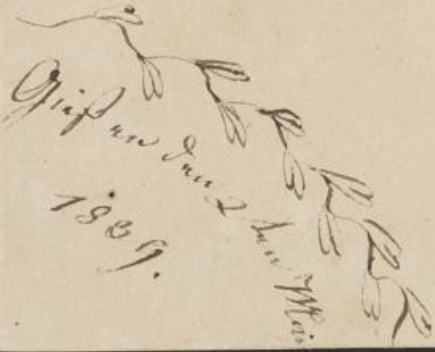 Gießen den 2 ten Mai
1829.